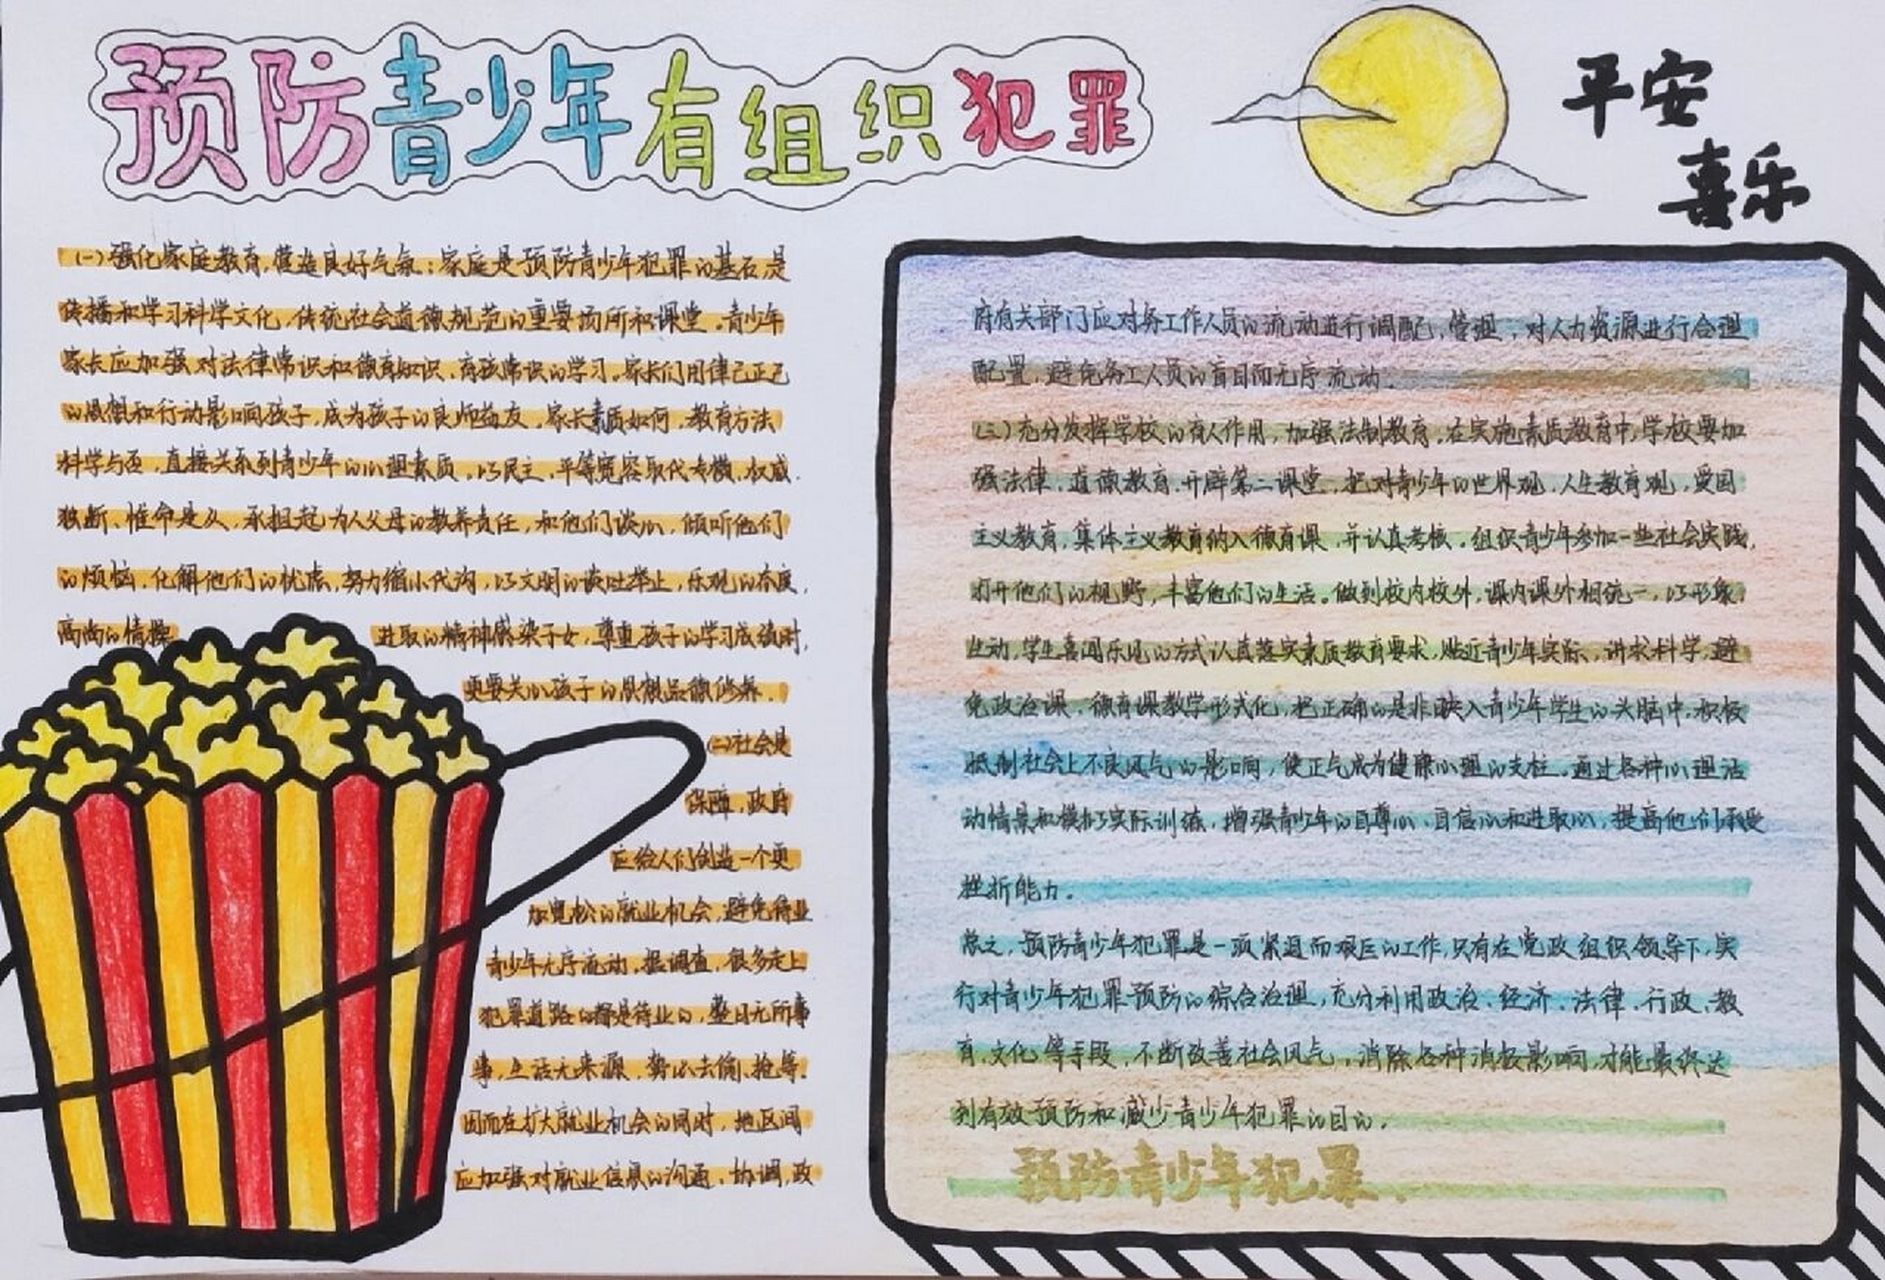 预防青少年有组织犯罪
平安
喜乐
(一)强化家庭教育,营造良好气氛:家庭是预防青少年犯罪的基石,是
传播和学习科学文化,传统社会道德规范的重要场所和课堂。青少年
家长应加强对法律常识和德育知识、育孩常识的学习。家长们用律己正己
的思想和行动影响孩子,成为孩子的良师益友。家长素质如何,教育方法
科学与否,直接关系到青少年的心理素质。以民主、平等宽容取代专横、权威、
独断、惟命是久,承担起为人父母的教养责任,和他们谈心,倾听他们
的烦恼,化解他们的忧虑,努力缩小代沟,以文明的谈吐举止,乐观的态度,
高尚的情操 进取的精神感染子女,尊重孩子的学习成绩时,
更要关心孩子的思想品德修养。
(二)社会是
保障,政府
应给人们创造一个更
加宽松的就业机会,避免待业
青少年无序流动。据调查,很多走上
犯罪道路的都是待业的,整日无所事
事,生活无来源,势必去偷、抢等。
因而在扩大就业机会的同时,地区间
应加强对就业信息的沟通、协调,政
府有关部门应对务工作人员的流动进行调配、管理,对人力资源进行合理
配置,避免务工人员的盲目而无序流动。
(三)充分发挥学校的育人作用,加强法制教育。在实施素质教育中,学校要加
强法律、道德教育,开辟第二课堂,把对青少年的世界观、人生教育观,爱国
主义教育,集体主义教育纳入德育课,并认真考核。组织青少年参加一些社会实践,
打开他们的视野,丰富他们的生活。做到校内校外,课内课外相统一,以形象,
生动,学生喜闻乐见的方式认真落实素质教育要求,贴近青少年实际、讲求科学,避
免政治课、德育课教学形式化,把正确的是非映入青少年学生的头脑中,积极
抵制社会上不良风气的影响,使正气成为健康心理的支柱。通过各种心理活
动情景和模拟实际训练,增强青少年的自尊心、自信心和进取心,提高他们承受
挫折能力。
总之,预防青少年犯罪是一项紧迫而艰巨的工作,只有在党政组织领导下,实
行对青少年犯罪预防的综合治理,充分利用政治、经济、法律、行政、教
育、文化等手段,不断改善社会风气,消除各种消极影响,才能最终达
到有效预防和减少青少年犯罪的目的。
预防青少年犯罪.